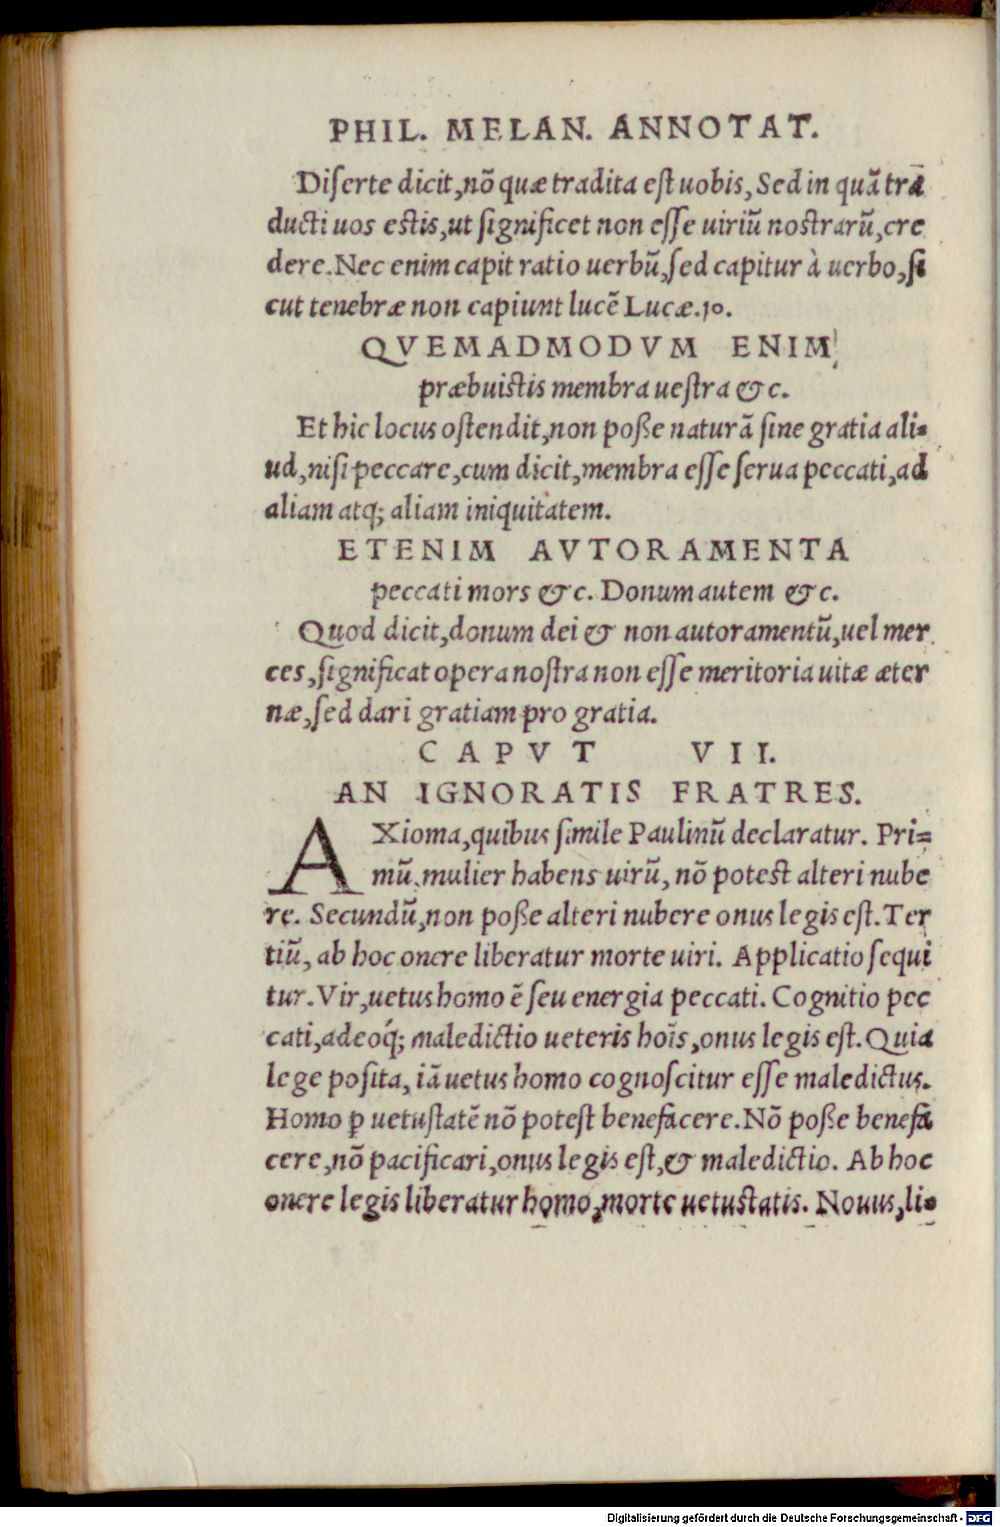 PHIL. MELAN. ANNOTAT.
Diserte dicit, nõ quæ tradita est uobis, Sed in quã tra
ducti uos estis, ut significet non esse uiriũ nostrarũ, cre
dere. Nec enim capit ratio uerbũ, sed capitur à uerbo, si
cut tenebræ non capiunt lucẽ Lucæ. 10.
QVEMADMODVM ENIM
præbuistis membra uestra & c.
Et hic locus ostendit, non posse naturã sine gratia ali-
ud, nisi peccare, cum dicit, membra esse serua peccati, ad
aliam atq; aliam iniquitatem.
ETENIM AVTORAMENTA
peccati mors & c. Donum autem & c.
Quod dicit, donum dei & non autoramentũ, uel mer
ces, significat opera nostra non esse meritoria uitæ æter
næ, sed dari gratiam pro gratia.
CAPVT VII.
AN IGNORATIS FRATRES.
AXioma, quibus simile Paulinũ declaratur. Pri=
mũ, mulier habens uirũ, nõ potest alteri nube
re. Secundũ, non posse alteri nubere onus legis est. Ter
tiũ, ab hoc onere liberatur morte uiri. Applicatio sequi
tur. Vir, uetus homo ẽ seu energia peccati. Cognitio pec
cati, adeoq́; maledictio ueteris hoĩs, onus legis est. Quia
lege posita, iã uetus homo cognoscitur esse maledictus.
Homo ꝑ uetustatẽ nõ potest benefacere. Nõ posse benefa
cere, nõ pacificari, onus legis est, & maledictio. Ab hoc
onere legis liberatur homo, morte uetustatis. Nouus, li-
Digitalisierung gefördert durch die Deutsche Forschungsgemeinschaft - DFG